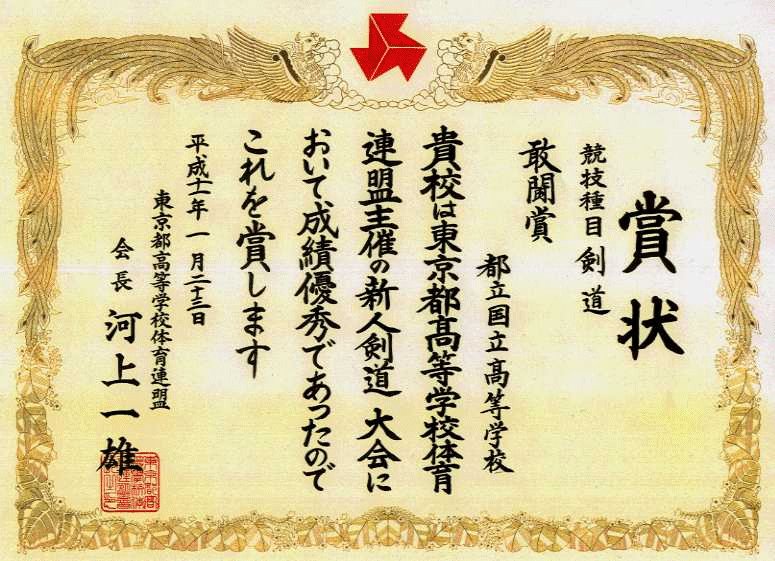 賞状
競技種目 剣道
敢闘賞
都立国立高等学校
貴校は東京都高等学校体育
連盟主催の新人剣道大会に
おいて成績優秀であったので
これを賞します
平成十一年一月二十三日
東京都高等学校体育連盟
会長 河上一雄